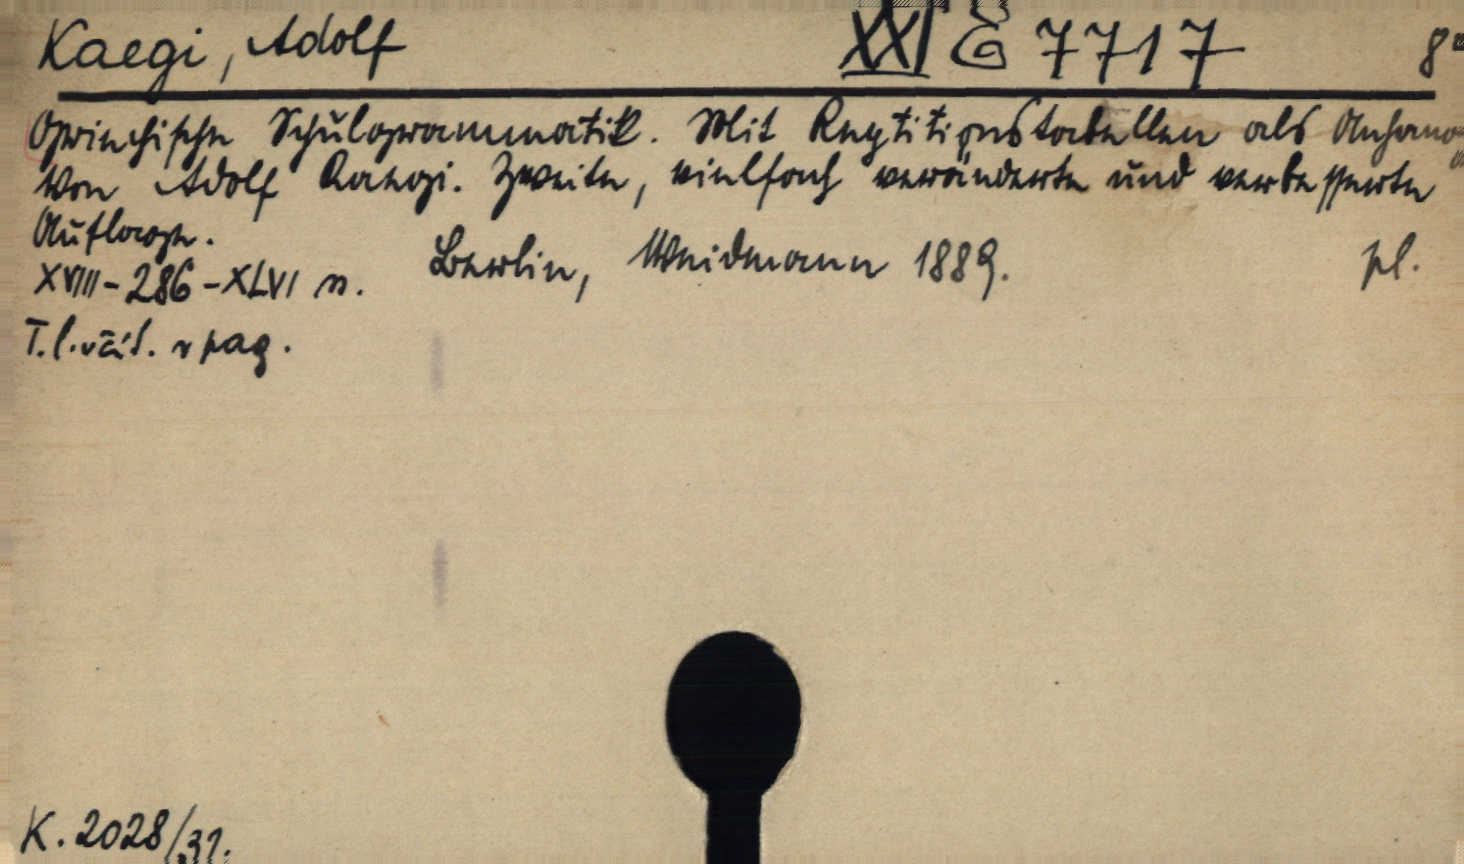 Kaegi, Adolf XXI E 7717 8°
Griechische Schulgrammatik. Mit Repetitionstabellen als Anhang
Von Adolf Kaegi. Zweite, vielfach veränderte und verbesserte
Auflage.
XVIII-286-XLVI s. Berlin, Weidmann 1889. pl.
T. l. v pag.
K. 2028/31.